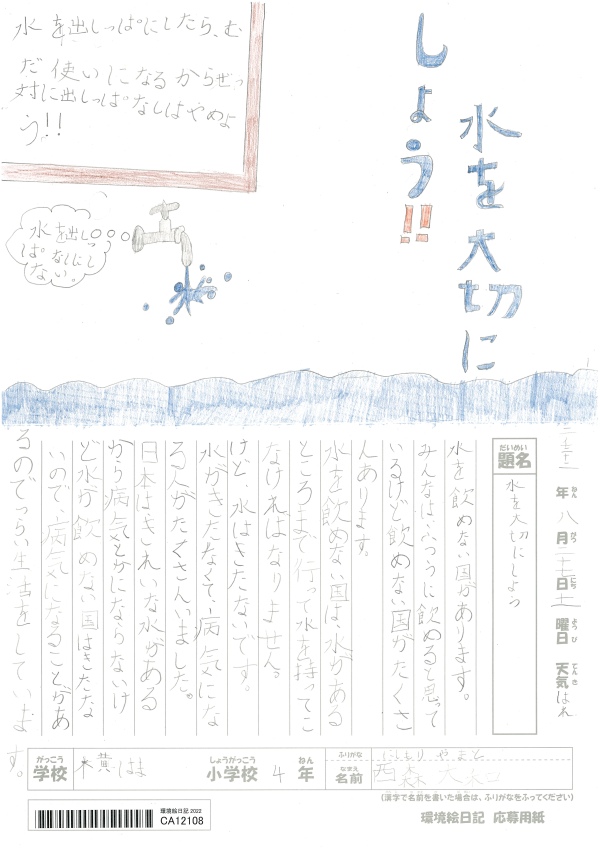 水を大切に
しょう!!
水を出しっぱにしたら、む
だ使いになるからぜっ
対に出しっぱなしはやめよ
う!!
水を出しっ
ぱなしにし
ない。
年 八月二十七日 土曜日 天気 はれ
ねん がつ にち ようび てんき
だいめい
題名
水を大切にしよう
水を飲めない国があります。
みんなはふつうに飲めると思って
いるけど飲めない国がたくさ
んあります。
水を飲めない国は、水がある
ところまで行って水を持ってこ
なければなりません。
けど、水はきたないです。
水がきたなくて、病気にな
る人がたくさんいました。
日本はきれいな水がある
から病気とかにならないけ
ど水が飲めない国はきたな
いので、病気になることがあ
るのでつらい生活をしていま
す。
がっこう
学校
しょうがっこう
小学校
4
ねん
年
ふりがな
にしもり やまと
なまえ
名前
西森大和
(漢字で名前を書いた場合は、ふりがなをふってください)
環境絵日記 2022
CA12108
環境絵日記 応募用紙